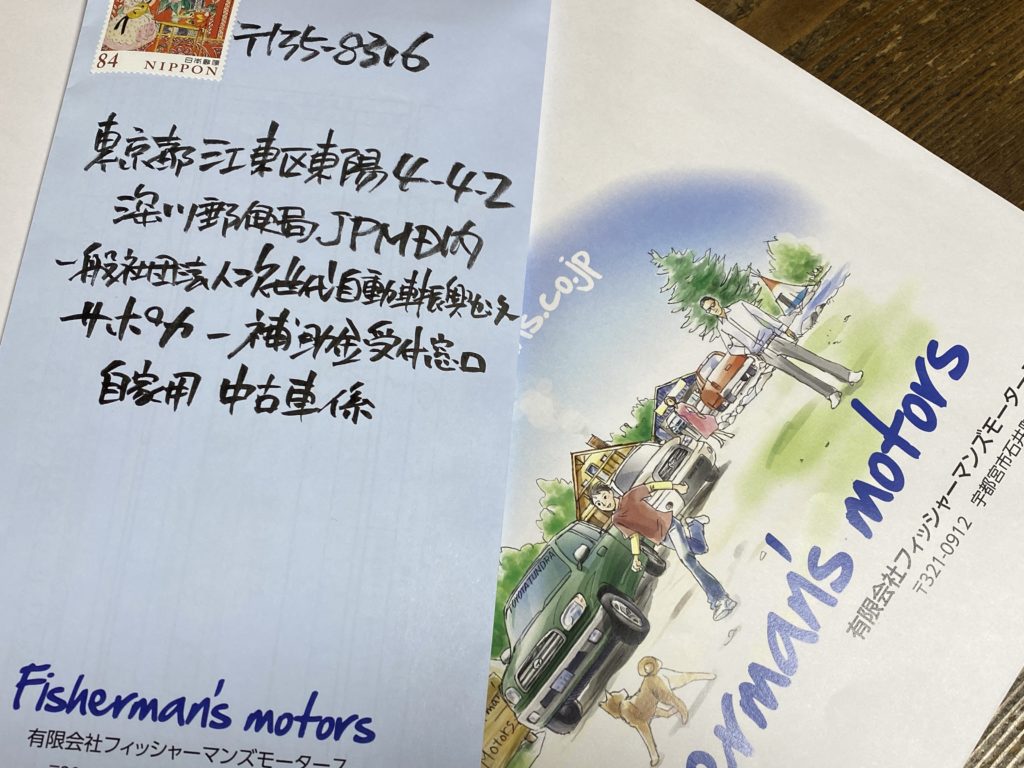 84
日本郵便
NIPPON
〒135-8316
東京都江東区東陽4-4-2
深川郵便局JPMD内
一般社団法人次世代自動車振興センター
サポカー補助金受付窓口
自家用 中古車係
Fisherman's motors
有限会社フィッシャーマンズモータース
s.co.jp
TOYOTA TUNDRA
Motors
erman's motors
有限会社フィッシャーマンズモーター
〒321-0912 宇都宮市石井町